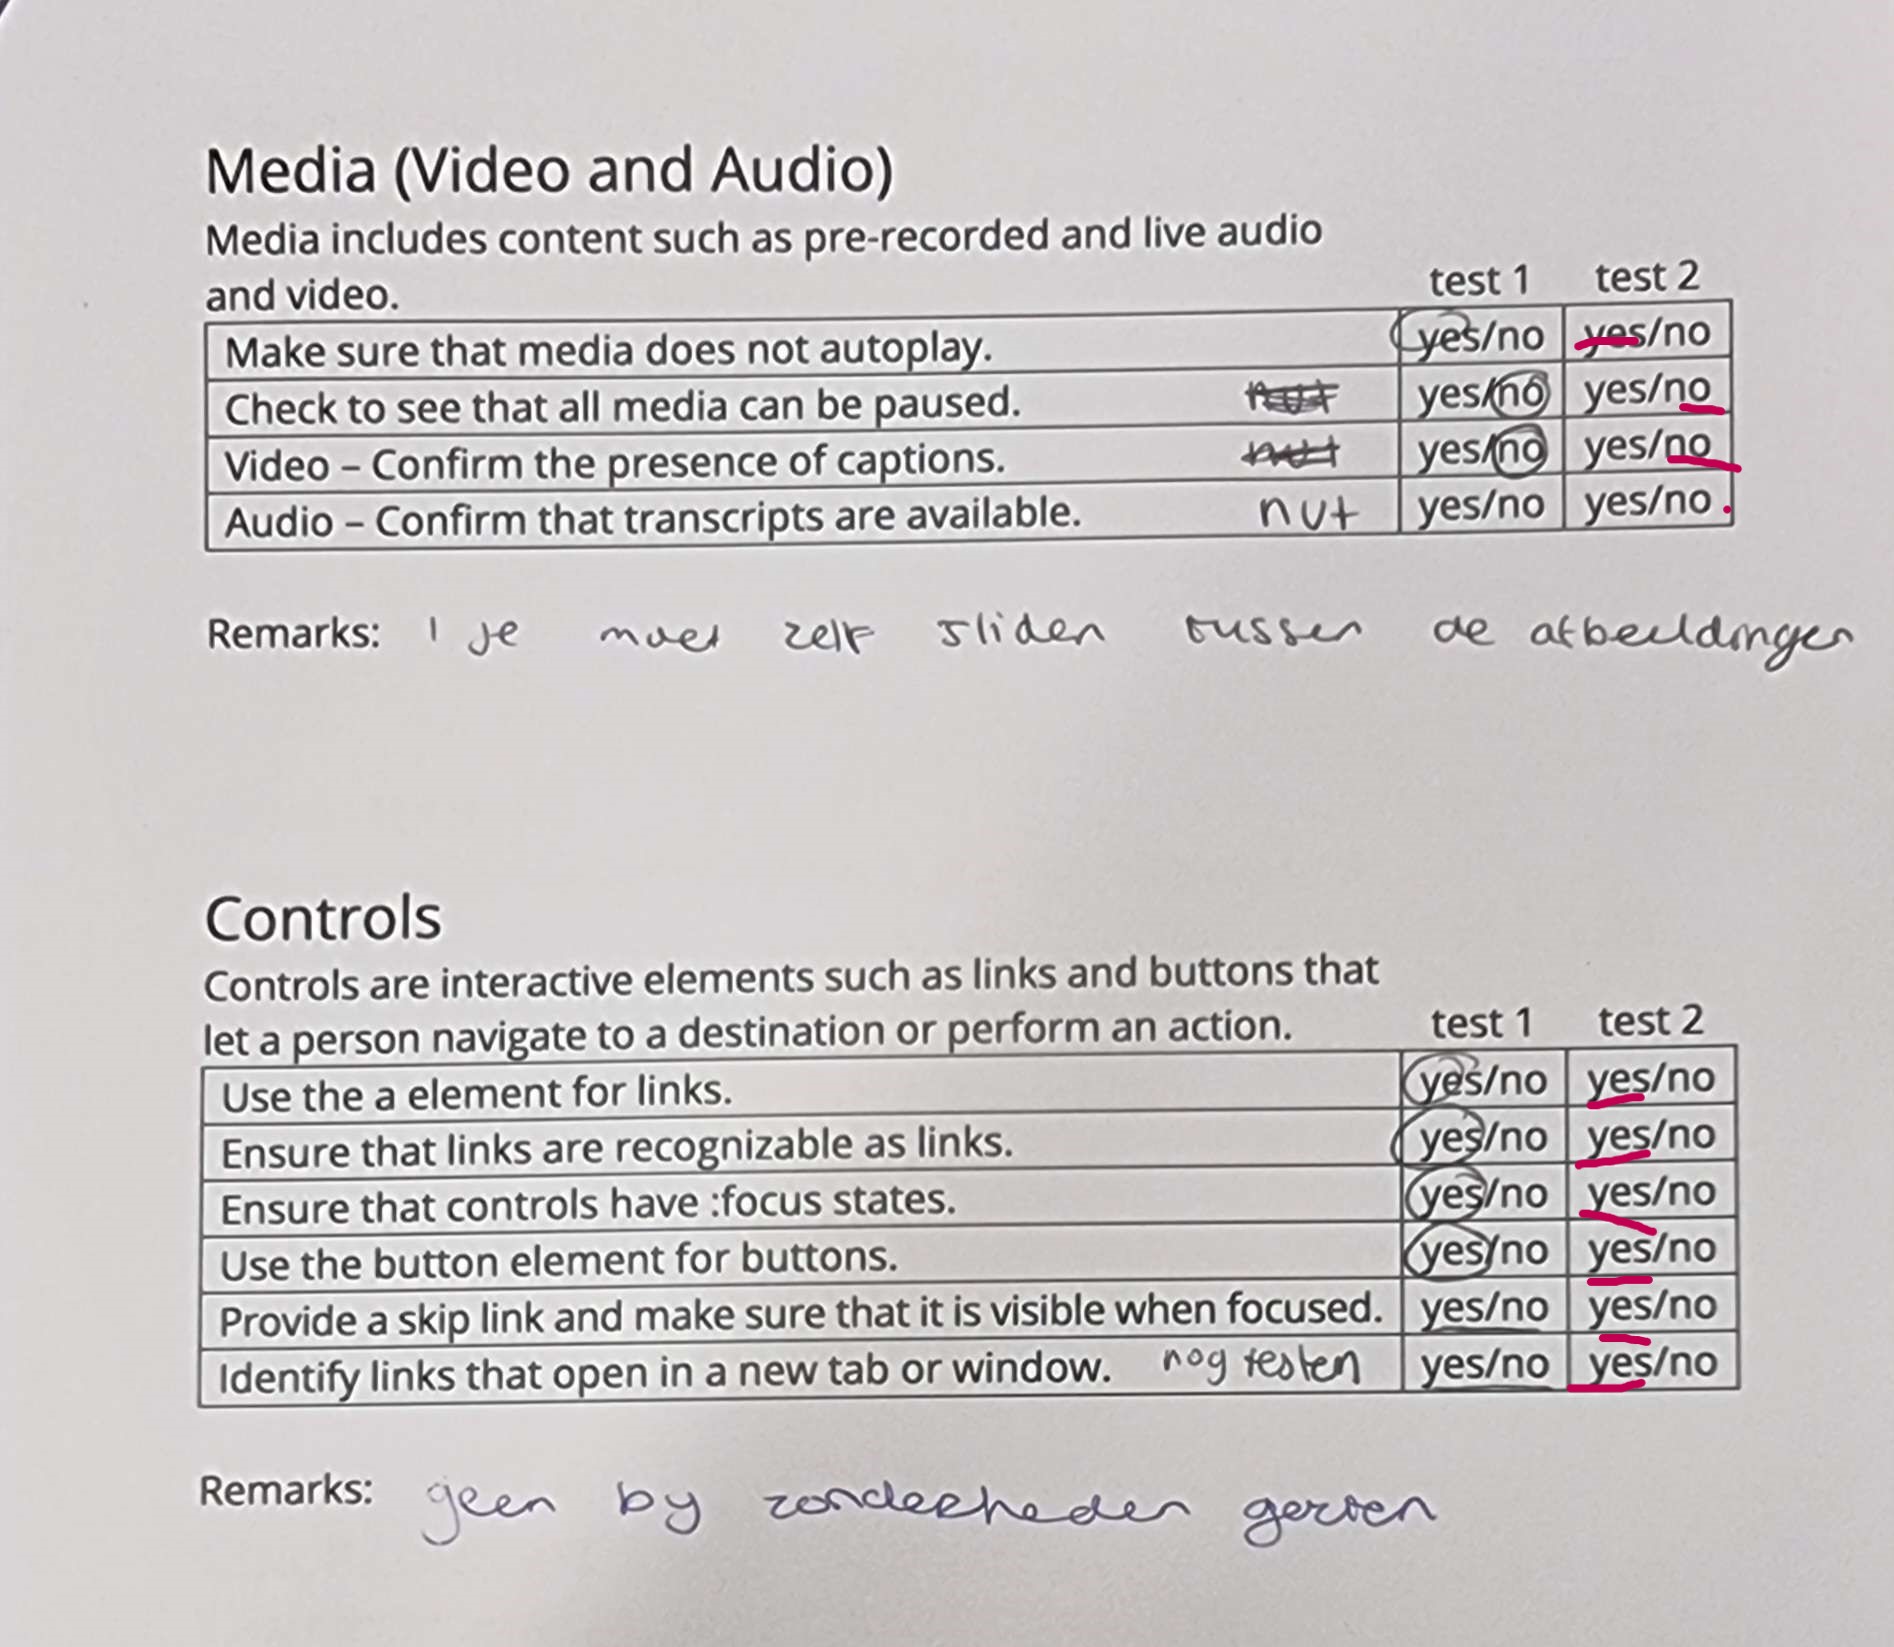 Media (Video and Audio)
Media includes content such as pre-recorded and live audio
and video.
test 1 test 2
Make sure that media does not autoplay. yes/no yes/no
Check to see that all media can be paused. yes/no yes/no
Video – Confirm the presence of captions. yes/no yes/no
Audio – Confirm that transcripts are available. nvt yes/no yes/no
Remarks: 1 je moet zelf sliden tussen de afbeeldingen
Controls
Controls are interactive elements such as links and buttons that
let a person navigate to a destination or perform an action.
test 1 test 2
Use the a element for links. yes/no yes/no
Ensure that links are recognizable as links. yes/no yes/no
Ensure that controls have :focus states. yes/no yes/no
Use the button element for buttons. yes/no yes/no
Provide a skip link and make sure that it is visible when focused. yes/no yes/no
Identify links that open in a new tab or window. nog testen yes/no yes/no
Remarks: geen by zonderheden